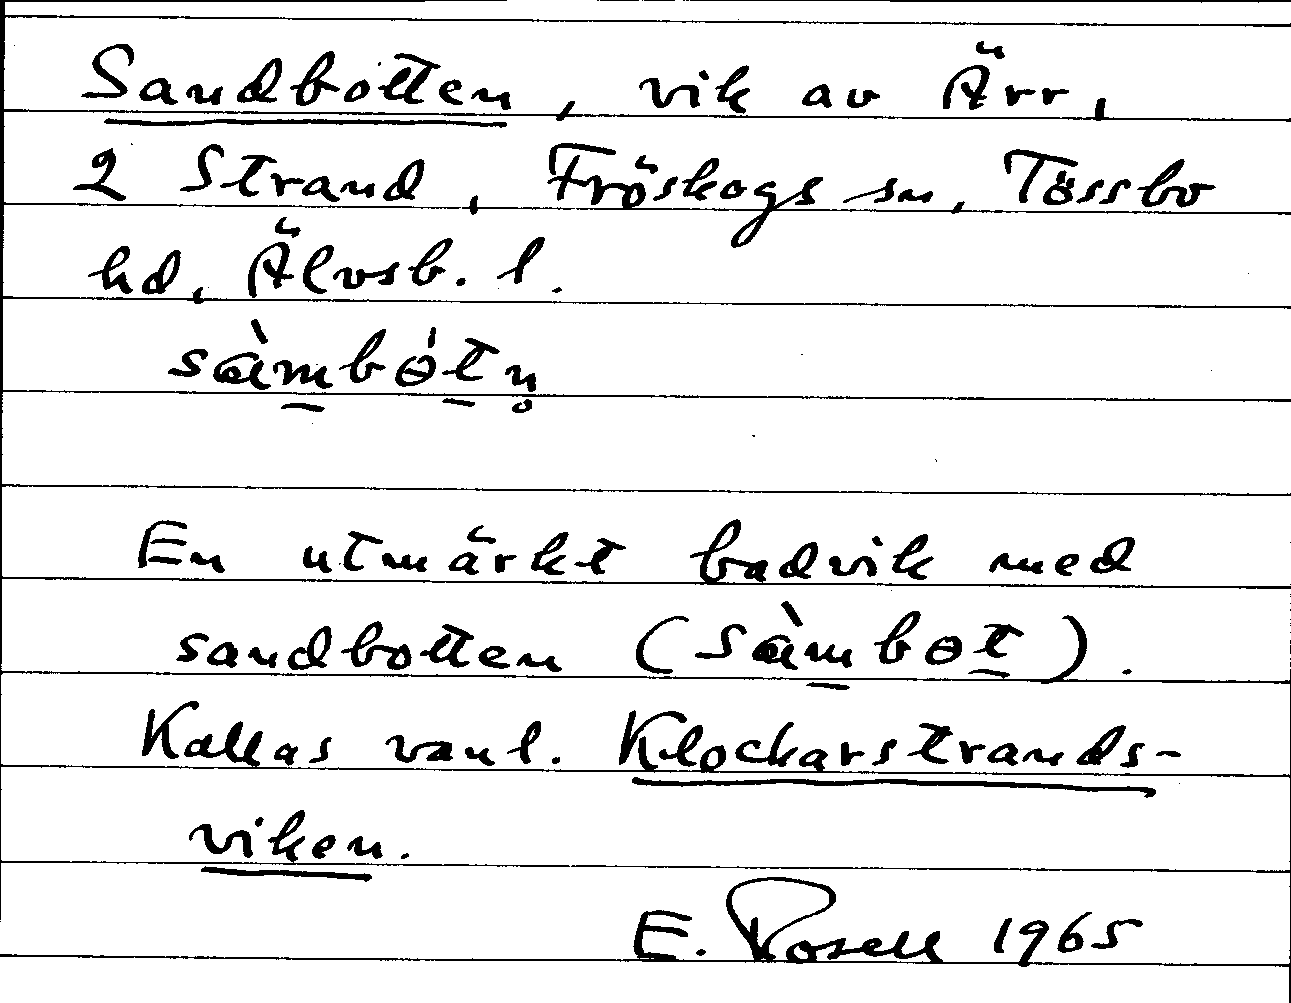 Sandbotten, vik av Ärr,
2 Strand, Fröskogs sn, Tössbo
hd, Älvsb. l.
sàm̲bɵ́t̲n̥
En utmärkt badvik med
sandbotten (sàm̲bɵt̲).
Kallas vanl. Klockarstrands-
viken.
E. Rosell 1965